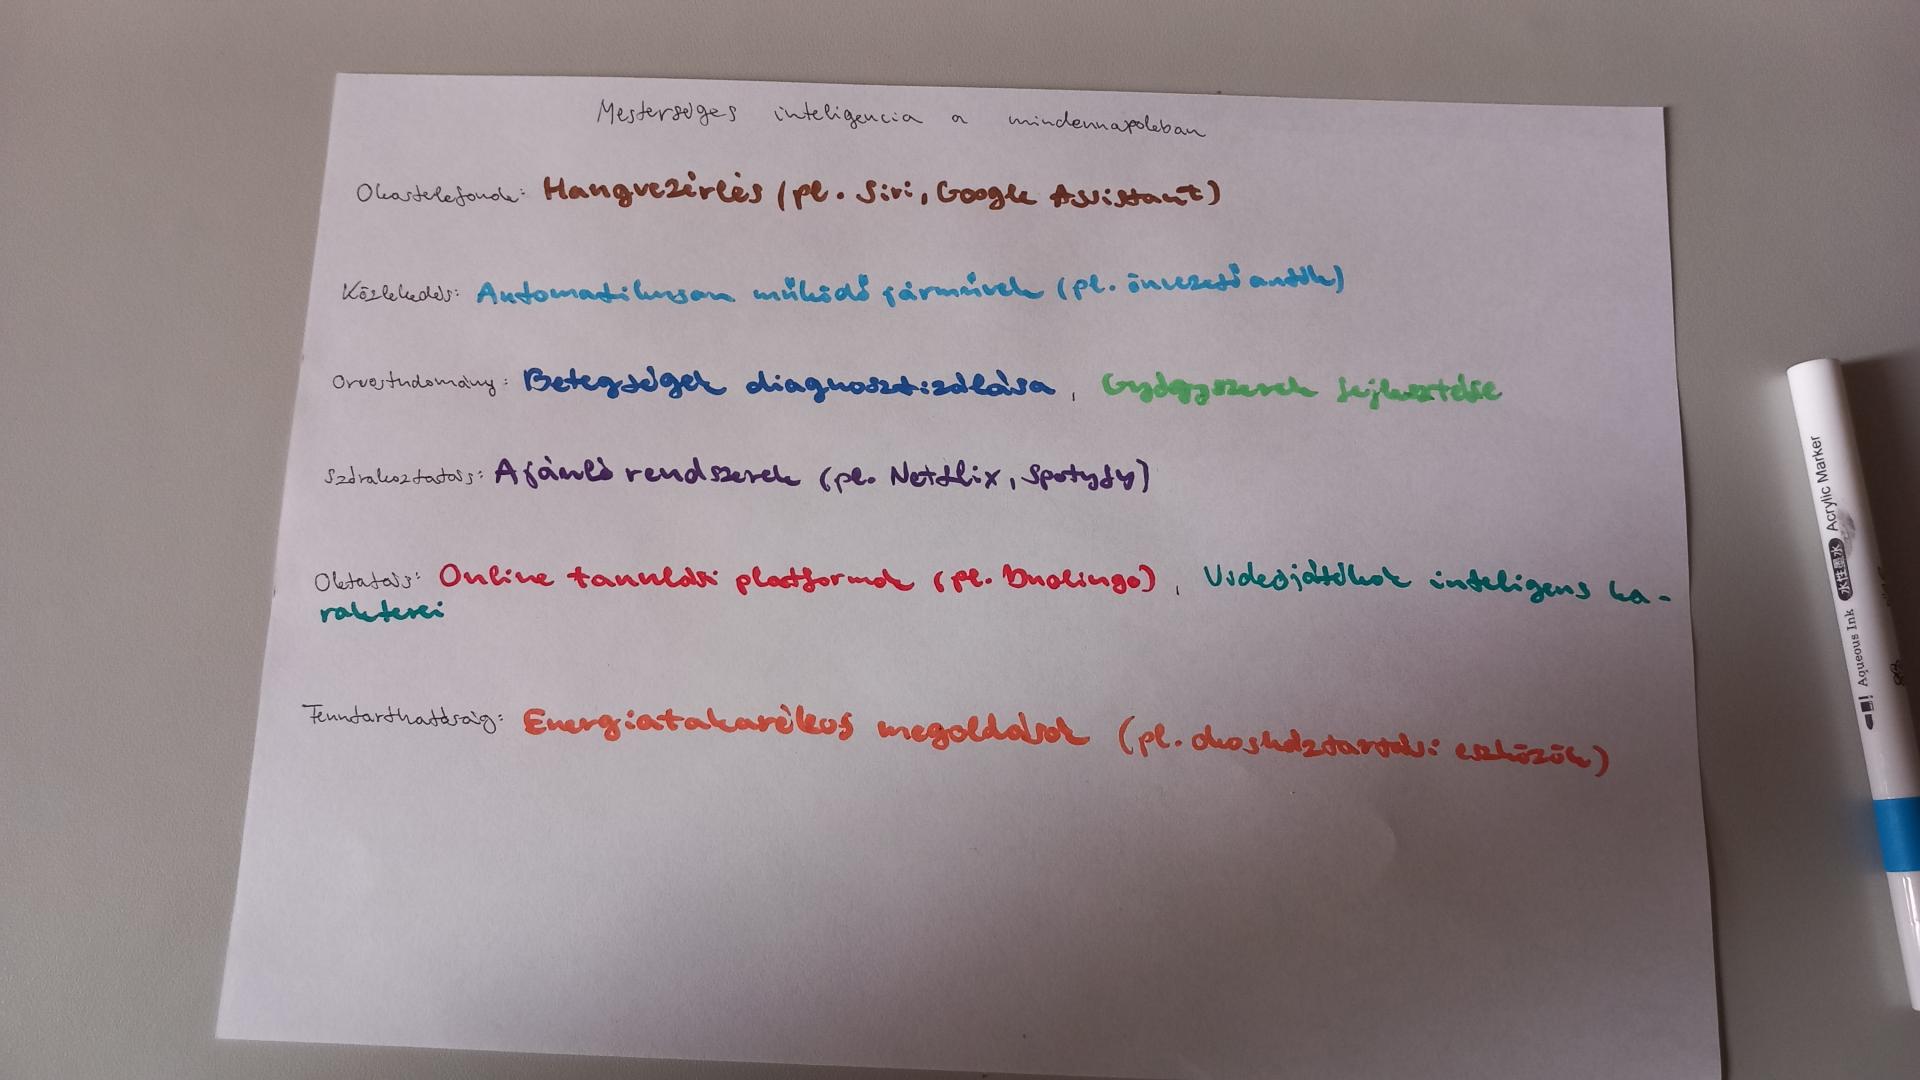 Mesterséges inteligencia a mindennapokban
Okostelefonok: Hangvezérlés (pl. Siri, Google Assistant)
Közlekedés: Automatikusan működő járművek (pl. önvezető autók)
Orvostudomány: Betegségek diagnosztizálása, Gyógyszerek fejlesztése
Szórakoztatás: Ajánló rendszerek (pl. Netflix, Spotyfy)
Oktatás: Online tanulási platformok (pl. Duolingo), Videójátékok inteligens ka-
rakterei
Fenntarthatóság: Energiatakarékos megoldások (pl. okosháztartási eszközök)
Aqueous Ink 水性墨水 Acrylic Marker